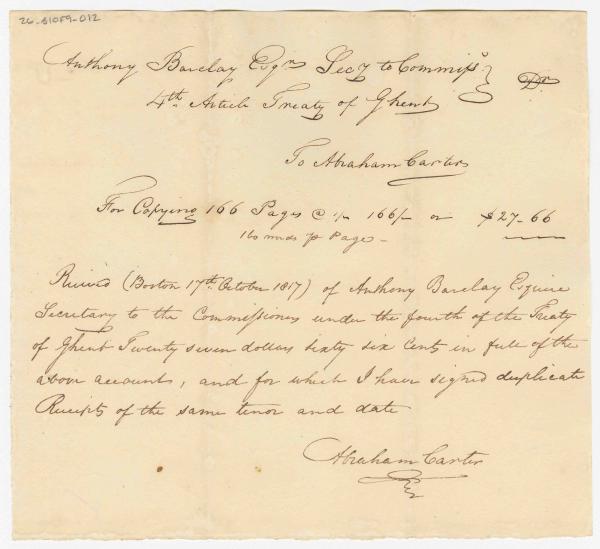 26-S1059-012
Anthony Barclay Esqr Secy to Commiss.
4th Article Treaty of Ghent } Dr
To Abraham Carter
For Copying 166 Pages @ 1/- 166/- or $27-66
160 words pr Page-
Received (Boston 17th October 1817) of Anthony Barclay Esquire
Secretary to the Commissioners under the fourth of the Treaty
of Ghent Twenty seven dollars sixty six Cents in full of the
above account, and for which I have signed duplicate
Receipts of the same tenor and date
Abraham Carter